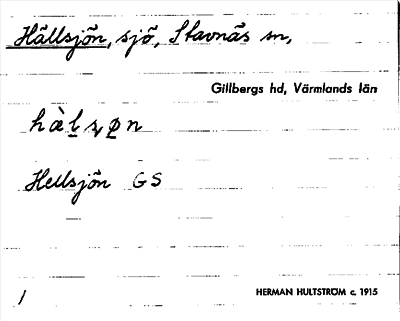 Hällsjön, sjö, Stavnäs sn,
Gillbergs hd, Värmlands län
hàl̠ʂø̠n
Hellsjön GS
1
HERMAN HULTSTRÖM c. 1915